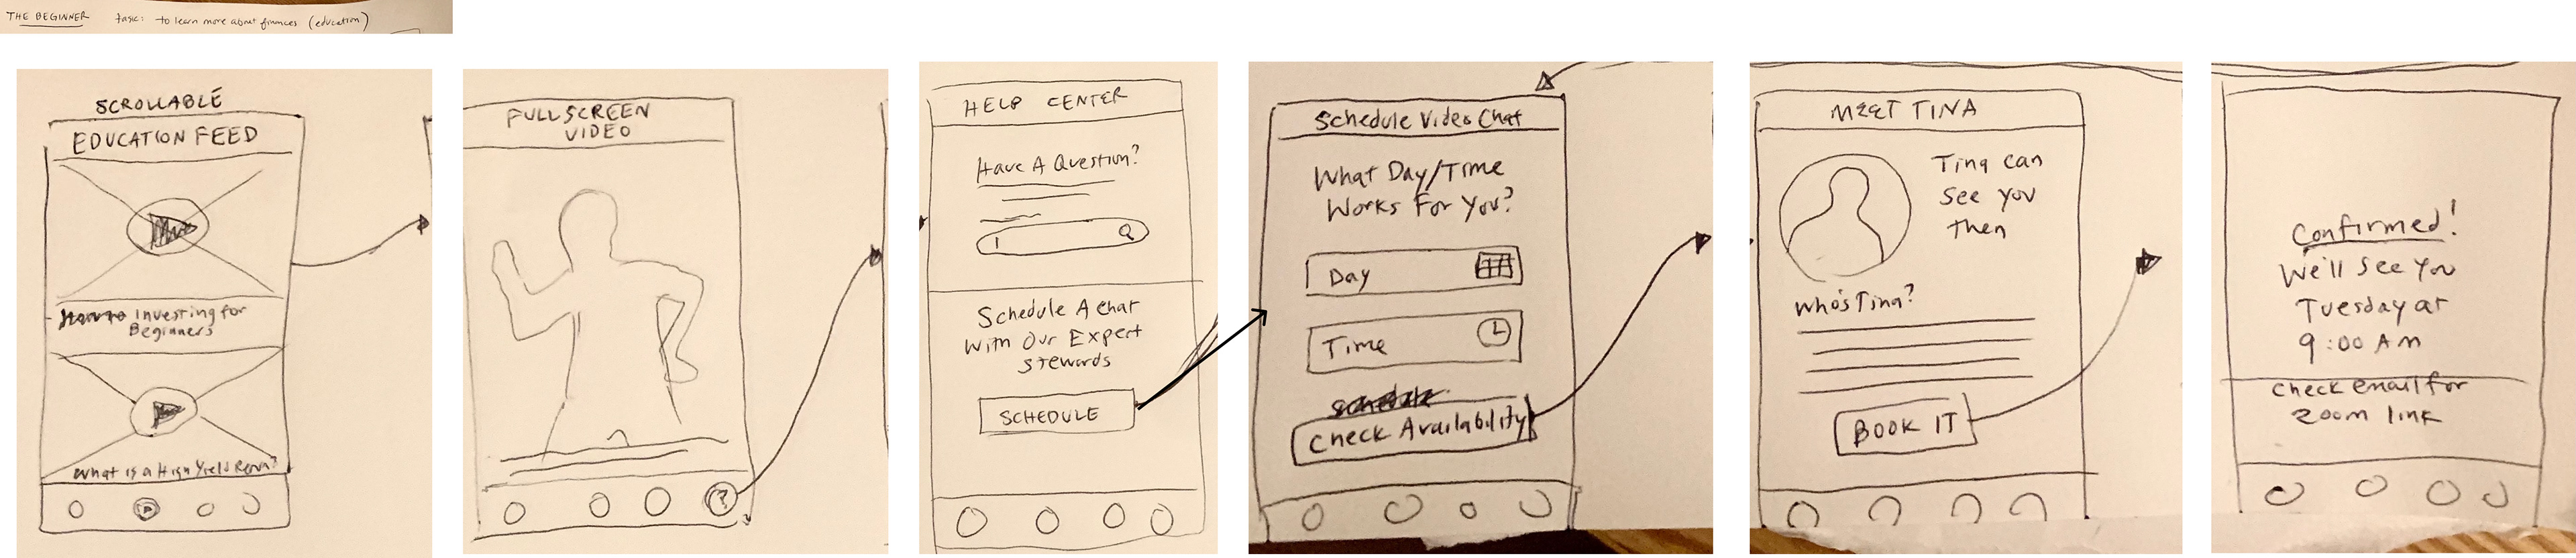 THE BEGINNER task: to learn more about finances (education)
SCROLLABLE
EDUCATION FEED
Investing for
Beginners
What is a High Yield
FULLSCREEN
VIDEO
?
HELP CENTER
Have A Question?
Schedule A Chat
With Our Expert
Stewards
SCHEDULE
Schedule Video Chat
What Day/Time
Works For You?
Day
Time
schedule
Check Availability
MEET TINA
Tina can
See you
then
Who's Tina?
BOOK IT
Confirmed!
We'll see you
Tuesday at
9:00 AM
Check email for
zoom link